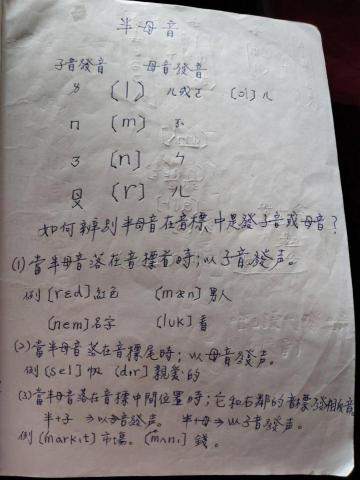 半母音
子音發音 母音發音
ㄌ (l) ㄦ或ㄛ [ɔl] ㄦ
ㄇ (m) ㄇ
ㄋ (n) ㄣ
(r) ㄦ
如何辨别半母音在音標中是發子音或母音?
(1) 當半母音落在音標首時;以子音發声。
例 [rɛd] 紅色 (mæn) 男人
(nem) 名字 (luk) 看
(2) 當半母音落在音標尾時;以母音發声。
例 [sel] 帆 (dɪr) 親愛的
(3) 當半母音落在音標中間位置時;它和右鄰的音標發相反音
半+子 ⇒以母音發声。 半+母⇒以子音發声。
例 (markɪt) 市場。 (mʌnɪ) 錢。